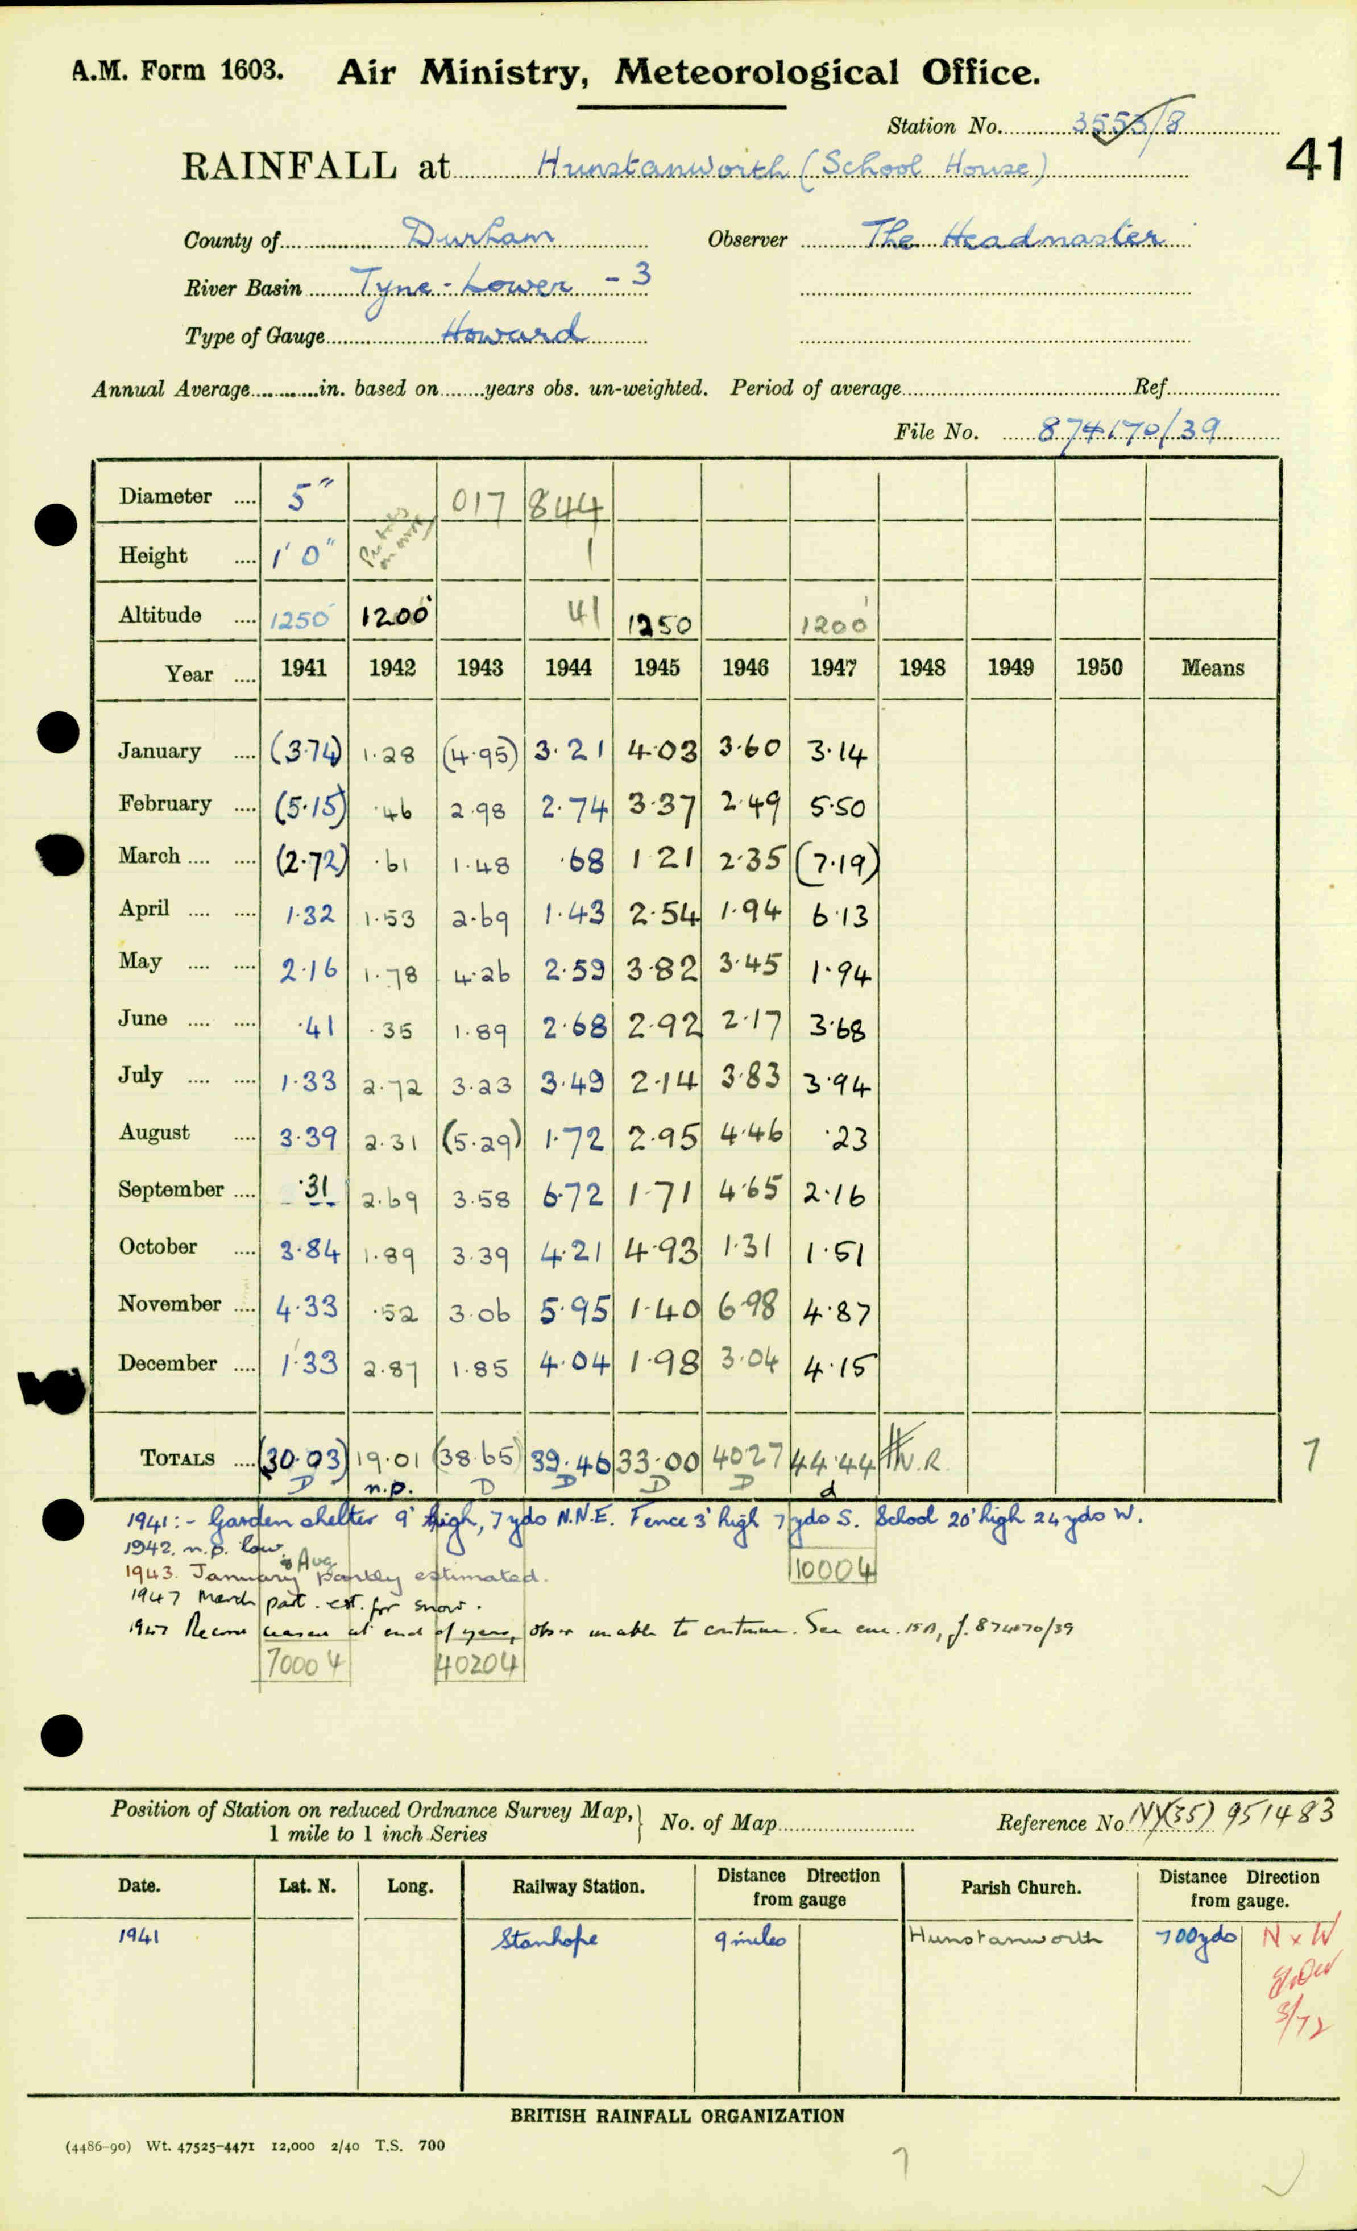 A.M. Form 1603. Air Ministry, Meteorological Office.
Station No. 3553/8
RAINFALL at Hunstanworth (School House)
41
County of Durham Observer The Headmaster
River Basin Tyne - Lower - 3
Type of Gauge Howard
Annual Average in. based on years obs. un-weighted. Period of average Ref.
File No. 874170/39
Diameter .... 5" 017 844
Height .... 1' 0" 1
Altitude .... 1250' 1200' 41 1250 1200'
Year .... 1941 1942 1943 1944 1945 1946 1947 1948 1949 1950 Means
January .... (3.74) 1.28 (4.95) 3.21 4.03 3.60 3.14
February .... (5.15) .46 2.98 2.74 3.37 2.49 5.50
March .... .... (2.72) .61 1.48 .68 1.21 2.35 (7.19)
April .... .... 1.32 1.53 2.69 1.43 2.54 1.94 6.13
May .... .... 2.16 1.78 4.26 2.59 3.82 3.45 1.94
June .... .... .41 .35 1.89 2.68 2.92 2.17 3.68
July .... .... 1.33 2.72 3.23 3.49 2.14 3.83 3.94
August .... 3.39 2.31 (5.29) 1.72 2.95 4.46 .23
September .... .31 2.69 3.58 6.72 1.71 4.65 2.16
October .... 3.84 1.89 3.39 4.21 4.93 1.31 1.51
November .... 4.33 .52 3.06 5.95 1.40 6.98 4.87
December .... 1.33 2.87 1.85 4.04 1.98 3.04 4.15
TOTALS .... (30.03) 19.01 (38.65) 39.46 33.00 40.27 44.44 N.R. 7
D n.p. D D D D d
1941:- Garden shelter 9' high, 7 yds N.N.E. Fence 3' high 7 yds S. School 20' high 24 yds W.
1942. n.p. low.
& Aug
1943. January partly estimated. 10004
1947 March part. est. for snow.
1947 Record ceased at end of year, obsr unable to continue. See enc. 15A, f. 874070/39
70004 40204
Position of Station on reduced Ordnance Survey Map, No. of Map Reference No NY(35) 951483
1 mile to 1 inch Series
Date. Lat. N. Long. Railway Station. Distance Direction from gauge Parish Church. Distance Direction from gauge.
1941 Stanhope 9 miles Hunstanworth 700yds N x W
3/72
BRITISH RAINFALL ORGANIZATION
(4486-90) Wt. 47525-4471 12,000 2/40 T.S. 700
7